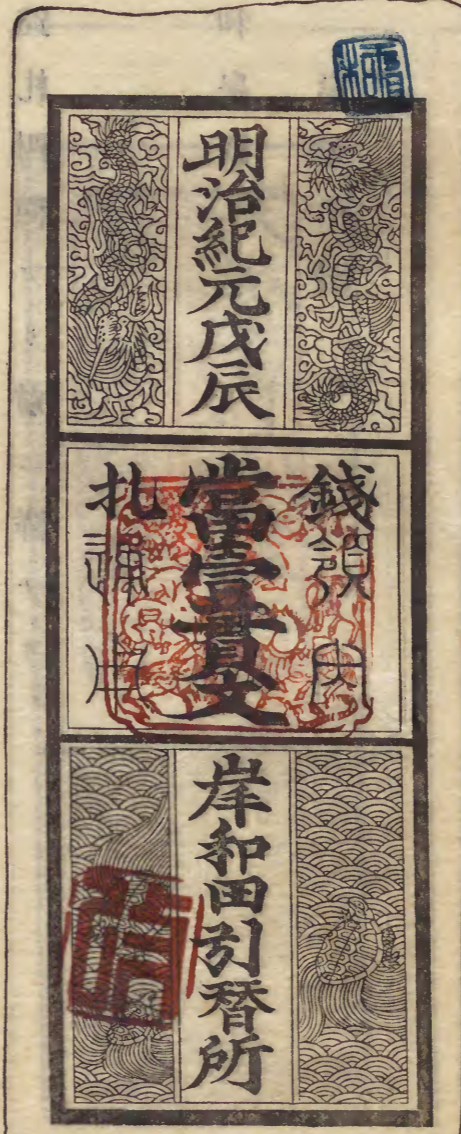 明治紀元戊辰
錢領内
當壹貫文
札通用
岸和田引替所